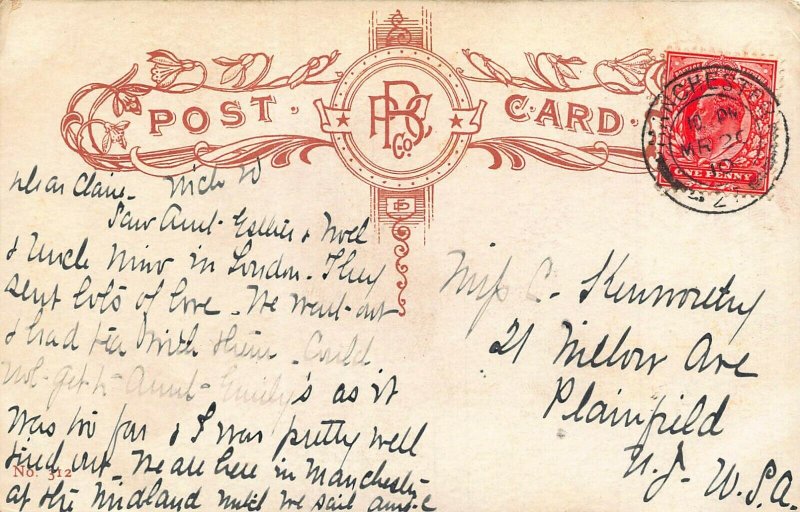 POST CARD.
PBC Co.
MANCHESTER
MR 21
ONE PENNY
Dear Claire - Wich W
Saw Aunt Esther & Noel
& Uncle Mino in London - They
sent lots of love - We went out
& had tea with them - Could
not get to Aunt Emily's as it
was too far & I was pretty well
tired out - We are here in Manchester
at the Midland until we sail
No. 312
Miss C. Kenworthy
21 Willow Ave
Plainfield
N.J. U.S.A.